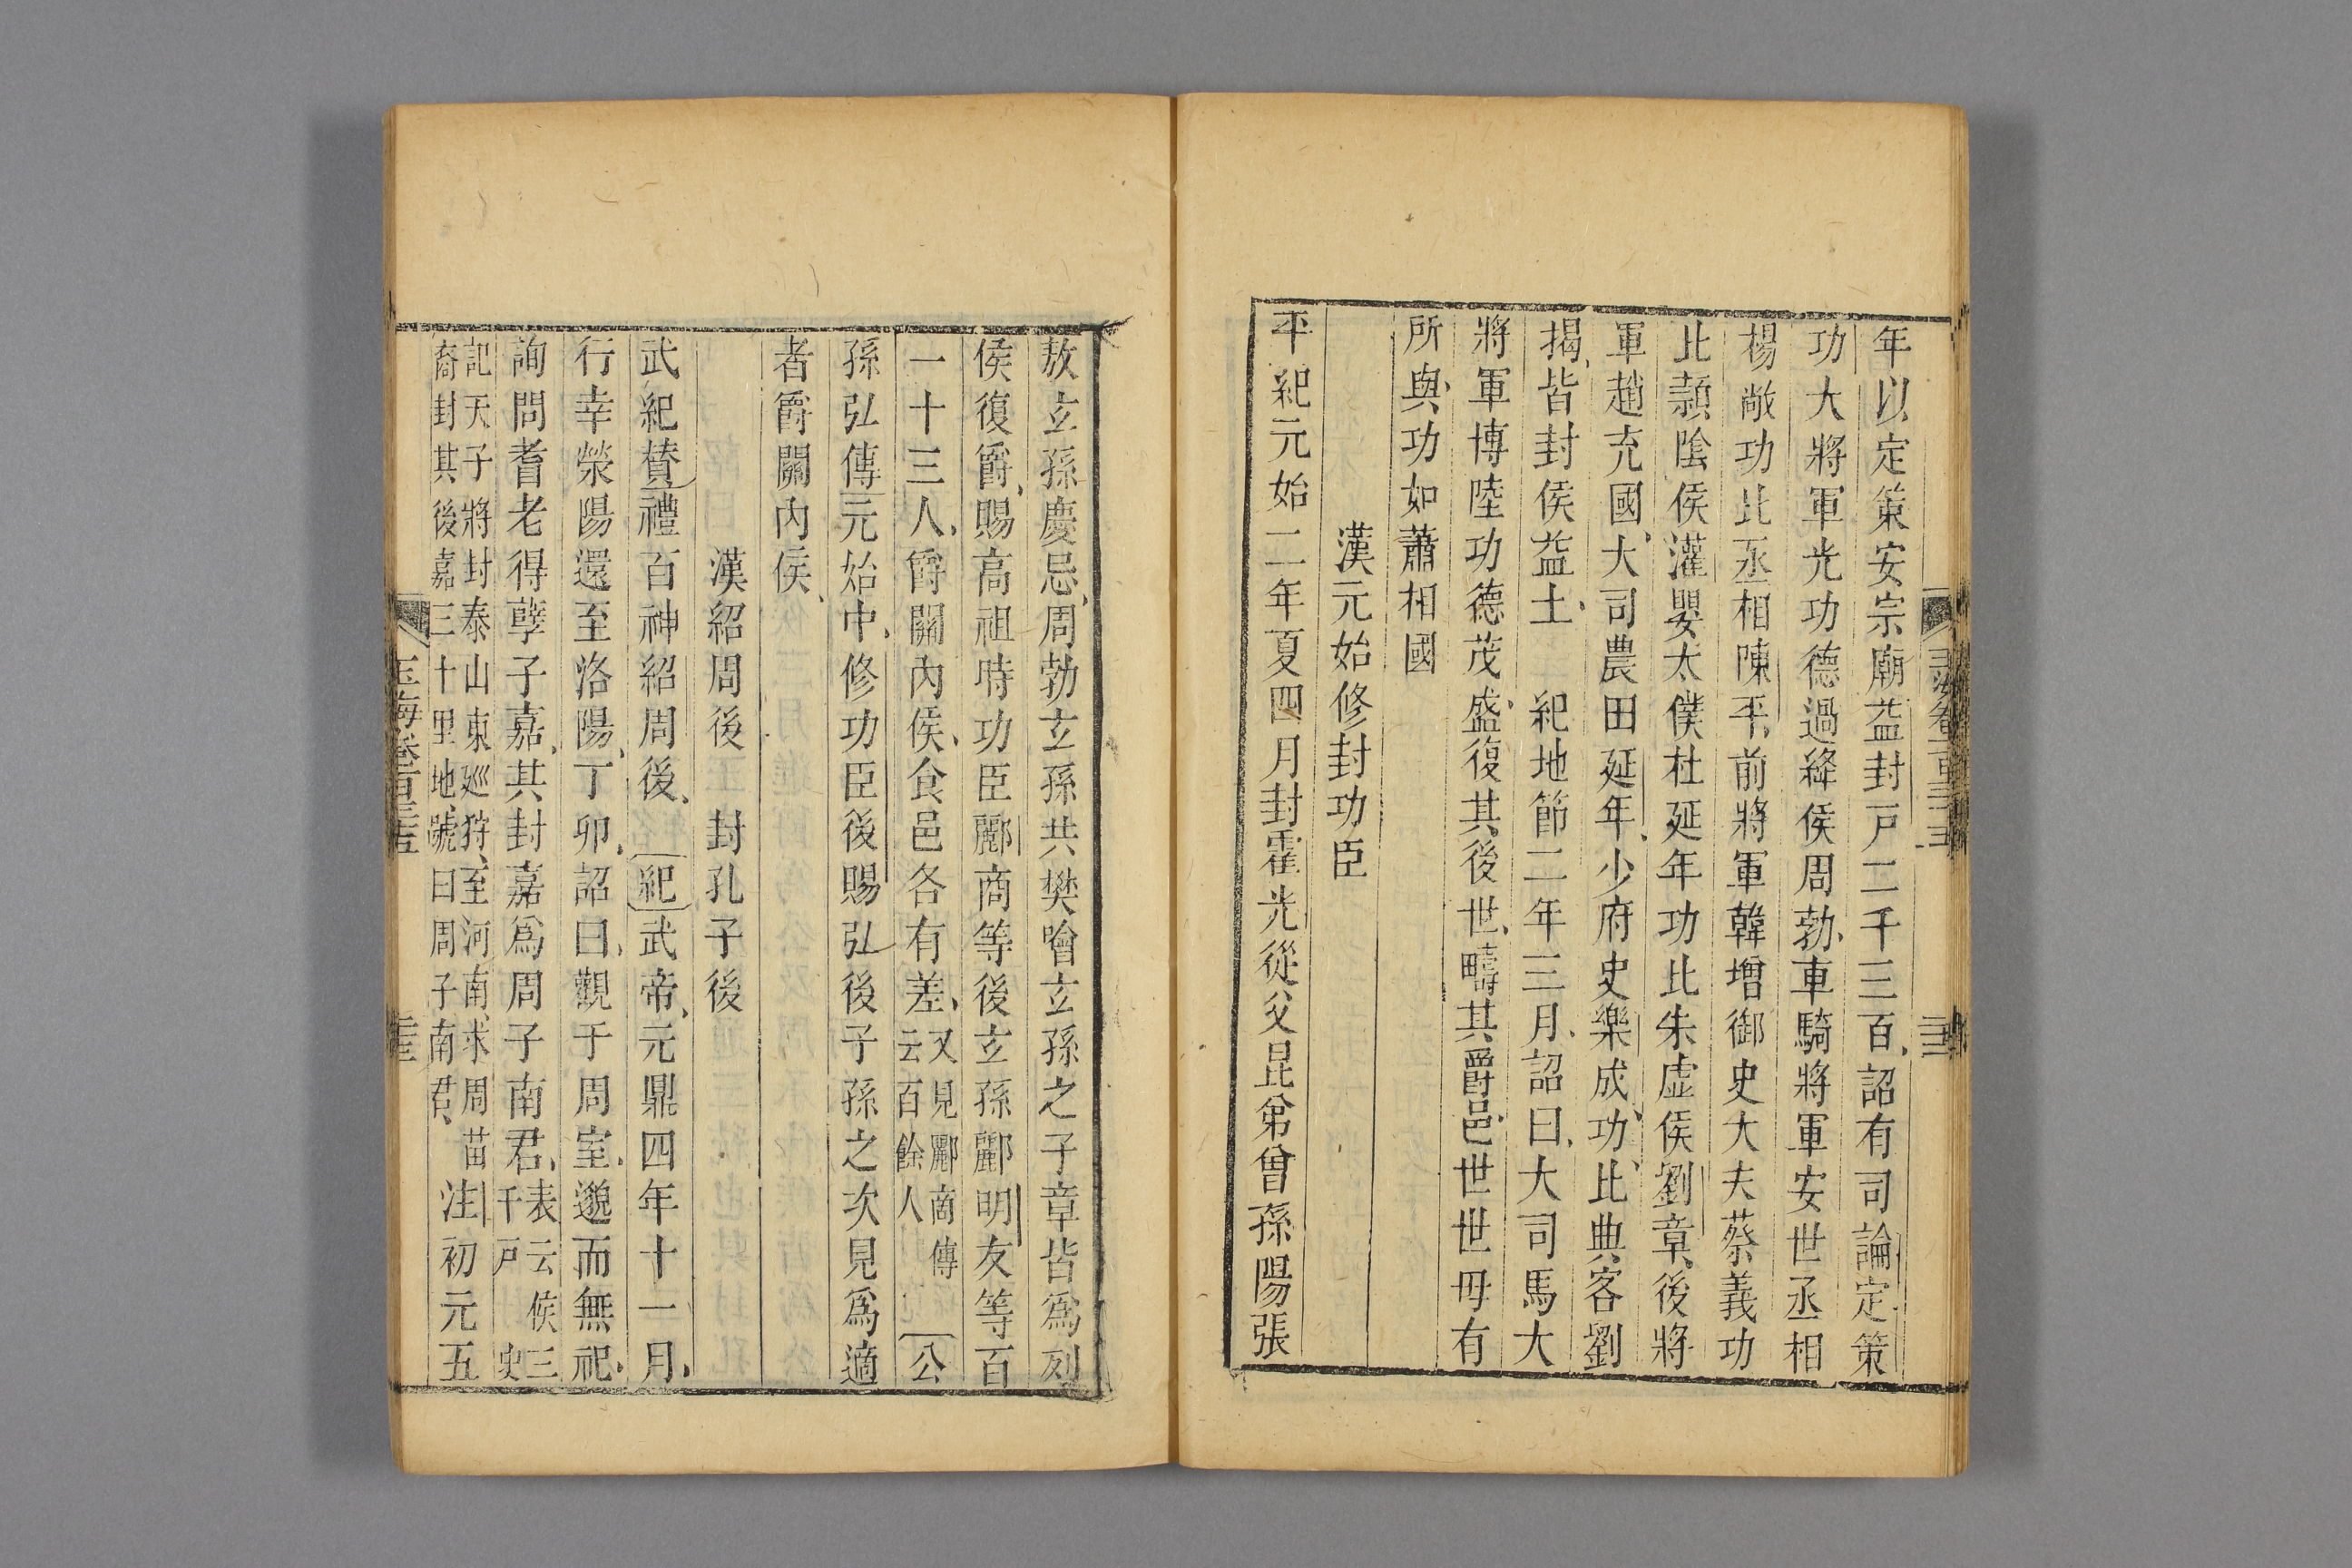 年以定策安宗廟益封戸二千三百詔有司論定策
功大將軍光功德過絳侯周勃車騎將軍安世丞相
楊敞功比丞相陳平前將軍韓增御史大夫蔡義功
比潁陰侯灌嬰太僕杜延年功比朱虛侯劉章後將
軍趙充國大司農田延年少府史樂成功比典客劉
揭皆封侯益土 紀地節二年三月詔曰大司馬大
將軍博陸功德茂盛復其後世疇其爵邑世世毋有
所與功如蕭相國
漢元始修封功臣
平紀元始二年夏四月封霍光從父昆弟曾孫陽張
敖玄孫慶忌周勃玄孫共樊噲玄孫之子章皆爲列
侯復爵賜高祖時功臣酈商等後玄孫酈明友等百
一十三人爵關內侯食邑各有差又見酈商傳云百餘人 公
孫弘傳元始中修功臣後賜弘後子孫之次見爲適
者爵關內侯
漢紹周後 封孔子後
武紀贊禮百神紹周後 紀武帝元鼎四年十一月
行幸滎陽還至洛陽丁卯詔曰觀于周室邈而無祀
詢問耆老得孽子嘉其封嘉爲周子南君表云侯三千戸 史
記天子將封泰山東廵狩至河南求周苗裔封其後嘉三十里地號曰周子南君 注初元五
玉海卷一百三十五